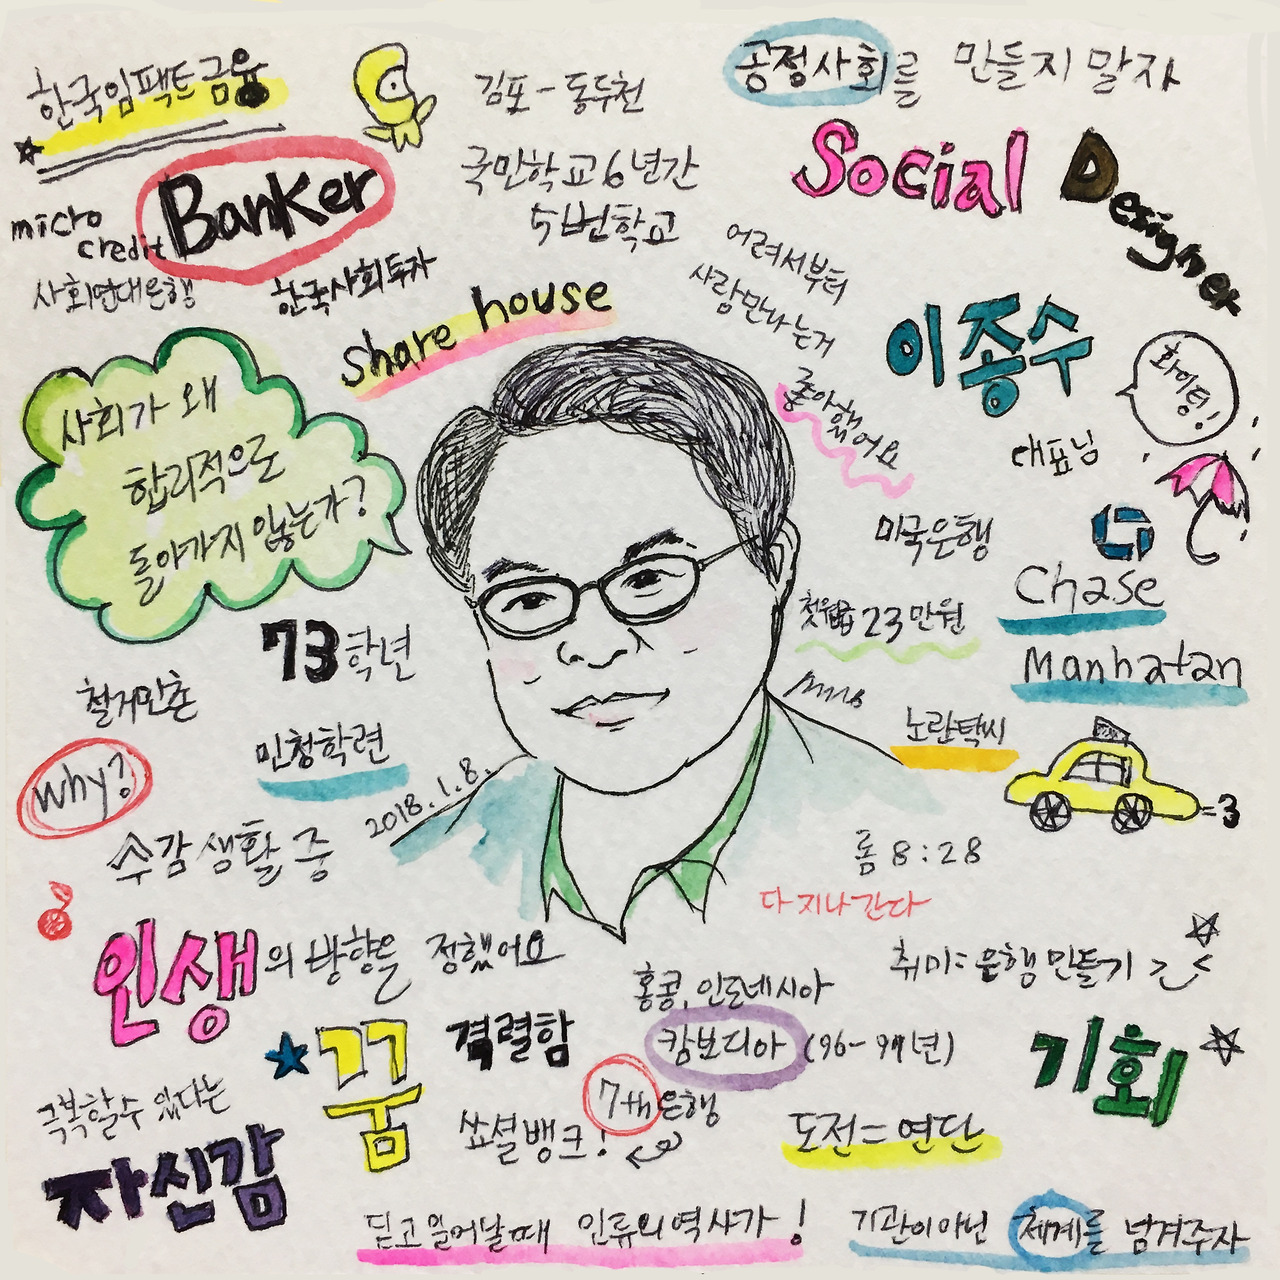 한국임팩트금융
Banker
micro
credit
사회연대은행
한국사회투자
김포-동두천
국민학교 6년간
5번학교
공정사회를 만들지 말자
Social Designer
어려서부터
사람만나는거
좋아했어요
이종수
대표님
화이팅!
share house
사회가 왜
합리적으로
돌아가지 않는가?
미국은행
Chase
Manhatan
첫월급 23만원
노란택시
=3
73학년
철거민촌
민청학련
why?
수감 생활 중
2018.1.8.
롬 8:28
다 지나간다
인생의 방향을 정했어요
취미=은행만들기
홍콩, 인도네시아
캄보디아 (96-99년)
격렬함
꿈
7th은행
쇼셜뱅크!
기회
극복할수 있다는
자신감
도전=연단
딛고 일어날때 인류의 역사가!
기관이아닌 체계를 넘겨주자